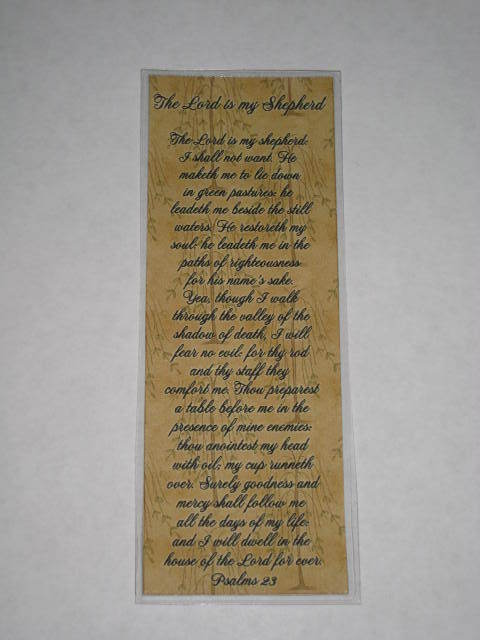 The Lord is my Shepherd
The Lord is my shepherd;
I shall not want. He
maketh me to lie down
in green pastures: he
leadeth me beside the still
waters. He restoreth my
soul: he leadeth me in the
paths of righteousness
for his name's sake.
Yea, though I walk
through the valley of the
shadow of death, I will
fear no evil: for thy rod
and thy staff they
comfort me. Thou preparest
a table before me in the
presence of mine enemies:
thou anointest my head
with oil; my cup runneth
over. Surely goodness and
mercy shall follow me
all the days of my life:
and I will dwell in the
house of the Lord for ever.
Psalms 23